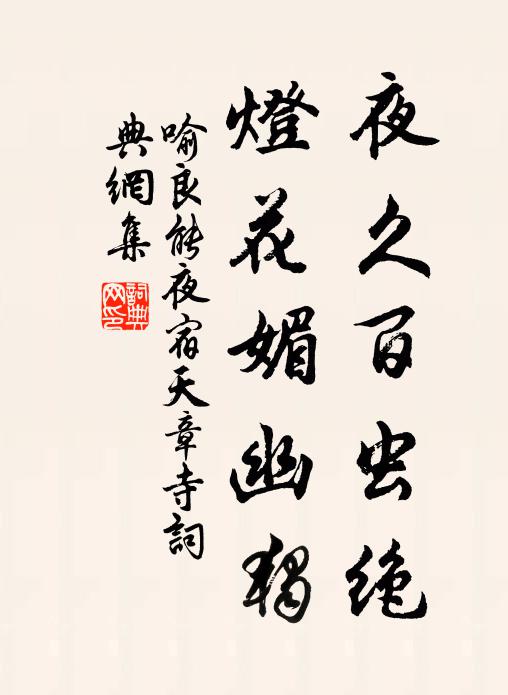 夜久百虫绝
燈花媚幽獨
喻良能夜宿天章寺詞
典網集
詞典
网印